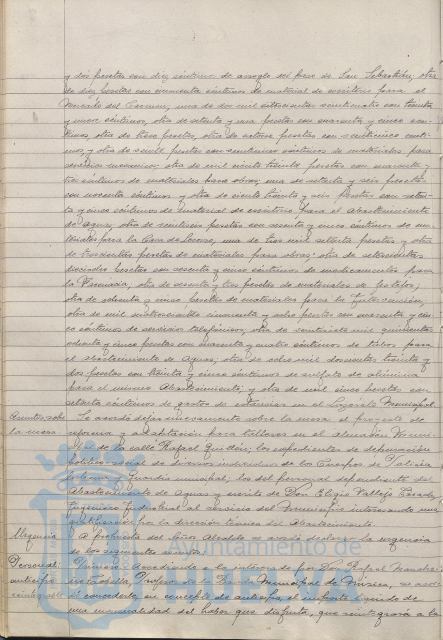 y dos pesetas con diez céntimos de arreglo del foso de San Sebastián; otra
de diez pesetas con cincuenta céntimos de material de escritorio para el
Mercado del Carmen; una de dos mil setecientas veinticuatro con treinta
y nueve céntimos, otra de setenta y una pesetas con cuarenta y cinco cén-
timos, otra de trece pesetas, otra de catorce pesetas con veinticinco cénti-
mos, y otra de pesetas con céntimos de materiales para
servicios mecánicos; otra de mil ciento treinta pesetas con cuarenta y
tres céntimos de materiales para obras; una de setenta y seis pesetas
con noventa céntimos y otra de ciento treinta y seis pesetas con seten-
ta y cinco céntimos de material de escritorio para el Abastecimiento
de aguas; otra de pesetas con sesenta y cinco céntimos de ma-
teriales para la Casa de Socorro, una de tres mil setenta pesetas y otra
de trescientas pesetas de materiales para obras; otra de setecientas
pesetas con sesenta y cinco céntimos de medicamentos para
la Farmacia, otra de sesenta y tres pesetas de materiales de festejos,
otra de ochenta y cinco pesetas de materiales para la Intervención,
otra de mil cuatrocientas cincuenta y ocho pesetas con cuarenta y cin-
co céntimos de servicios telefónicos, otra de veintisiete mil quinientas
ochenta y cinco pesetas con sesenta y cuatro céntimos de tubos para
el abastecimiento de aguas; otra de ocho mil doscientas treinta y
dos pesetas con treinta y cinco céntimos de sulfato de alúmina
para el mismo Abastecimiento; y otra de mil cinco pesetas con
setenta céntimos de gastos de estancias en el Hospital Municipal.
Asuntos sobre
la mesa
Se acordó dejar nuevamente sobre la mesa el proyecto de
reforma y adaptación para talleres en el almacén Muni-
cipal de la calle Rafael Guillén; los expedientes de depuración
político-social de diversos individuos de los Cuerpos de Policía
Urbana y Guardia municipal; los del personal dependiente del
Abastecimiento de aguas y escrito de Don Eligio Vallejo
Ingeniero Industrial al servicio del Municipio interesando una
gratificación por la dirección técnica del Abastecimiento.
Urgencia
A propuesta del Señor Alcalde se acordó declarar la urgencia
de los siguientes asuntos:
Personal:
anticipo
reintegrable
Primero: Accediendo a lo interesado por Don Rafael
Profesor de la Banda Municipal de Música, se acordó
concederle, en concepto de anticipo, el importe líquido de
una mensualidad del haber que disfruta, que reintegrará a la
Ayuntamiento de